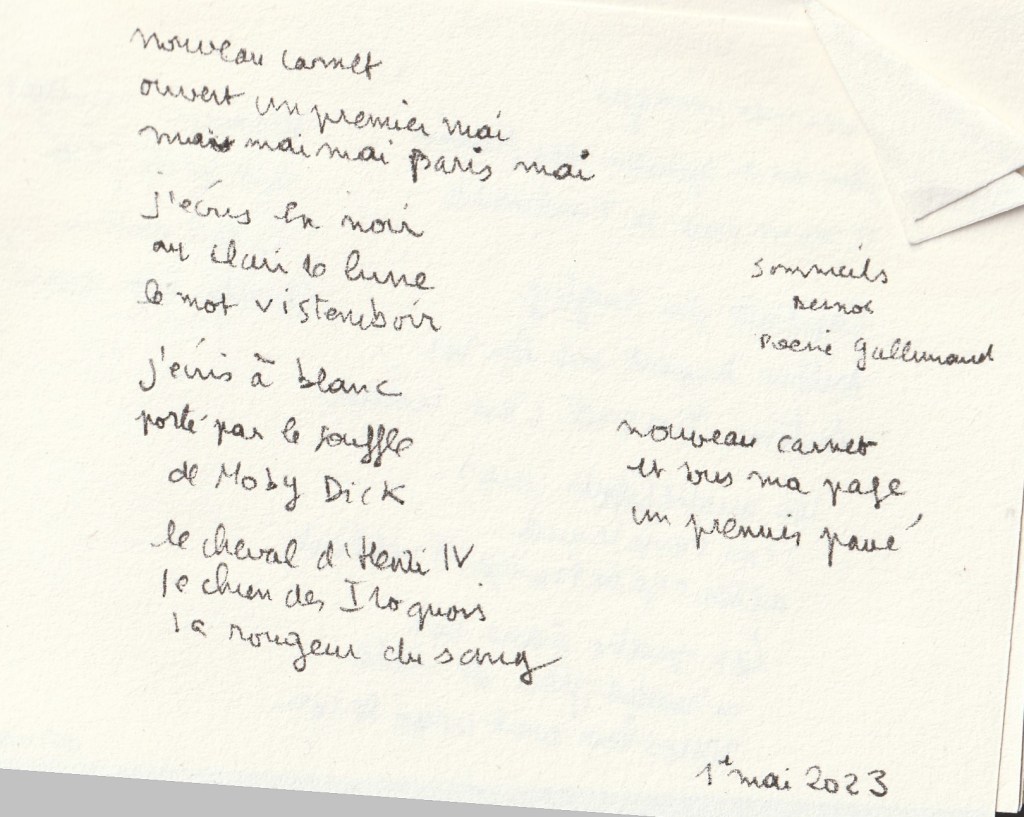 nouveau carnet
ouvert un premier mai
mais mai mai paris mai
j'écris en noir
au clair de lune
le mot vistemboir
j'écris à blanc
porté par le souffle
de Moby Dick
le cheval d'Henri IV
le chien des Iroquois
la rougeur du sang
sommeils
Desnos
Poésie Gallimard
nouveau carnet
et sous ma page
un premier pavé
1er mai 2023